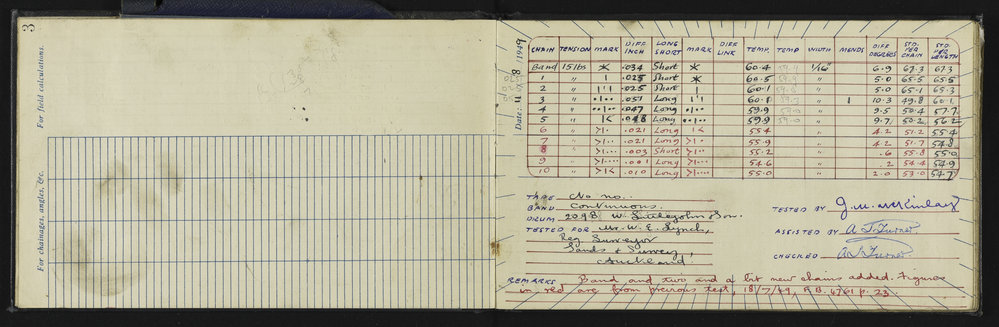 3
For field calculations.
For chainages, angles, &c.
Date: 11 8 1949
CHAIN TENSION MARK DIFF INCH LONG SHORT MARK DIFF LINK TEMP. TEMP WIDTH MENDS DIFF DEGREES STD. PER CHAIN STD. PER LENGTH
Band 15 lbs * .034 Short * 60.4 1/16" 6.9 67.3 67.3
1 " | .025 Short * 60.5 " 5.0 65.5 65.5
2 " |'| .025 Short | 60.1 59.8 " 5.0 65.1 65.3
3 " ••|•• .051 Long |'| 60.1 " 1 10.3 49.8 60.1
4 " ••|•• .047 Long ••|•• 59.9 59.0 " 9.5 50.4 57.7
5 " |< .048 Long ••|•• 59.9 59.0 " 9.7 50.2 56.2
6 " >|• .021 Long |< 55.4 " 4.2 51.2 55.4
7 " >|•• .021 Long >|• 55.9 " 4.2 51.7 54.8
8 " >|••• .003 Short >|•• 55.2 " .6 55.8 55.0
9 " >|•••• .001 Long >|••• 54.6 " .2 54.4 54.9
10 " >|< .010 Long >|•••• 55.0 " 2.0 53.0 54.7
TAPE No no.
BAND Continuous.
DRUM 2098 W. Littlejohn & Son.
TESTED FOR Mr. W. E. Lynch,
Reg Surveyor
Lands & Survey,
Auckland.
TESTED BY J. M. McKinlay
ASSISTED BY A. J. Turner
CHECKED A. J. Turner
REMARKS Band and two and a bit new chains added. Figures
in red are from previous test, 18/7/49, F.B. 6761 p. 23